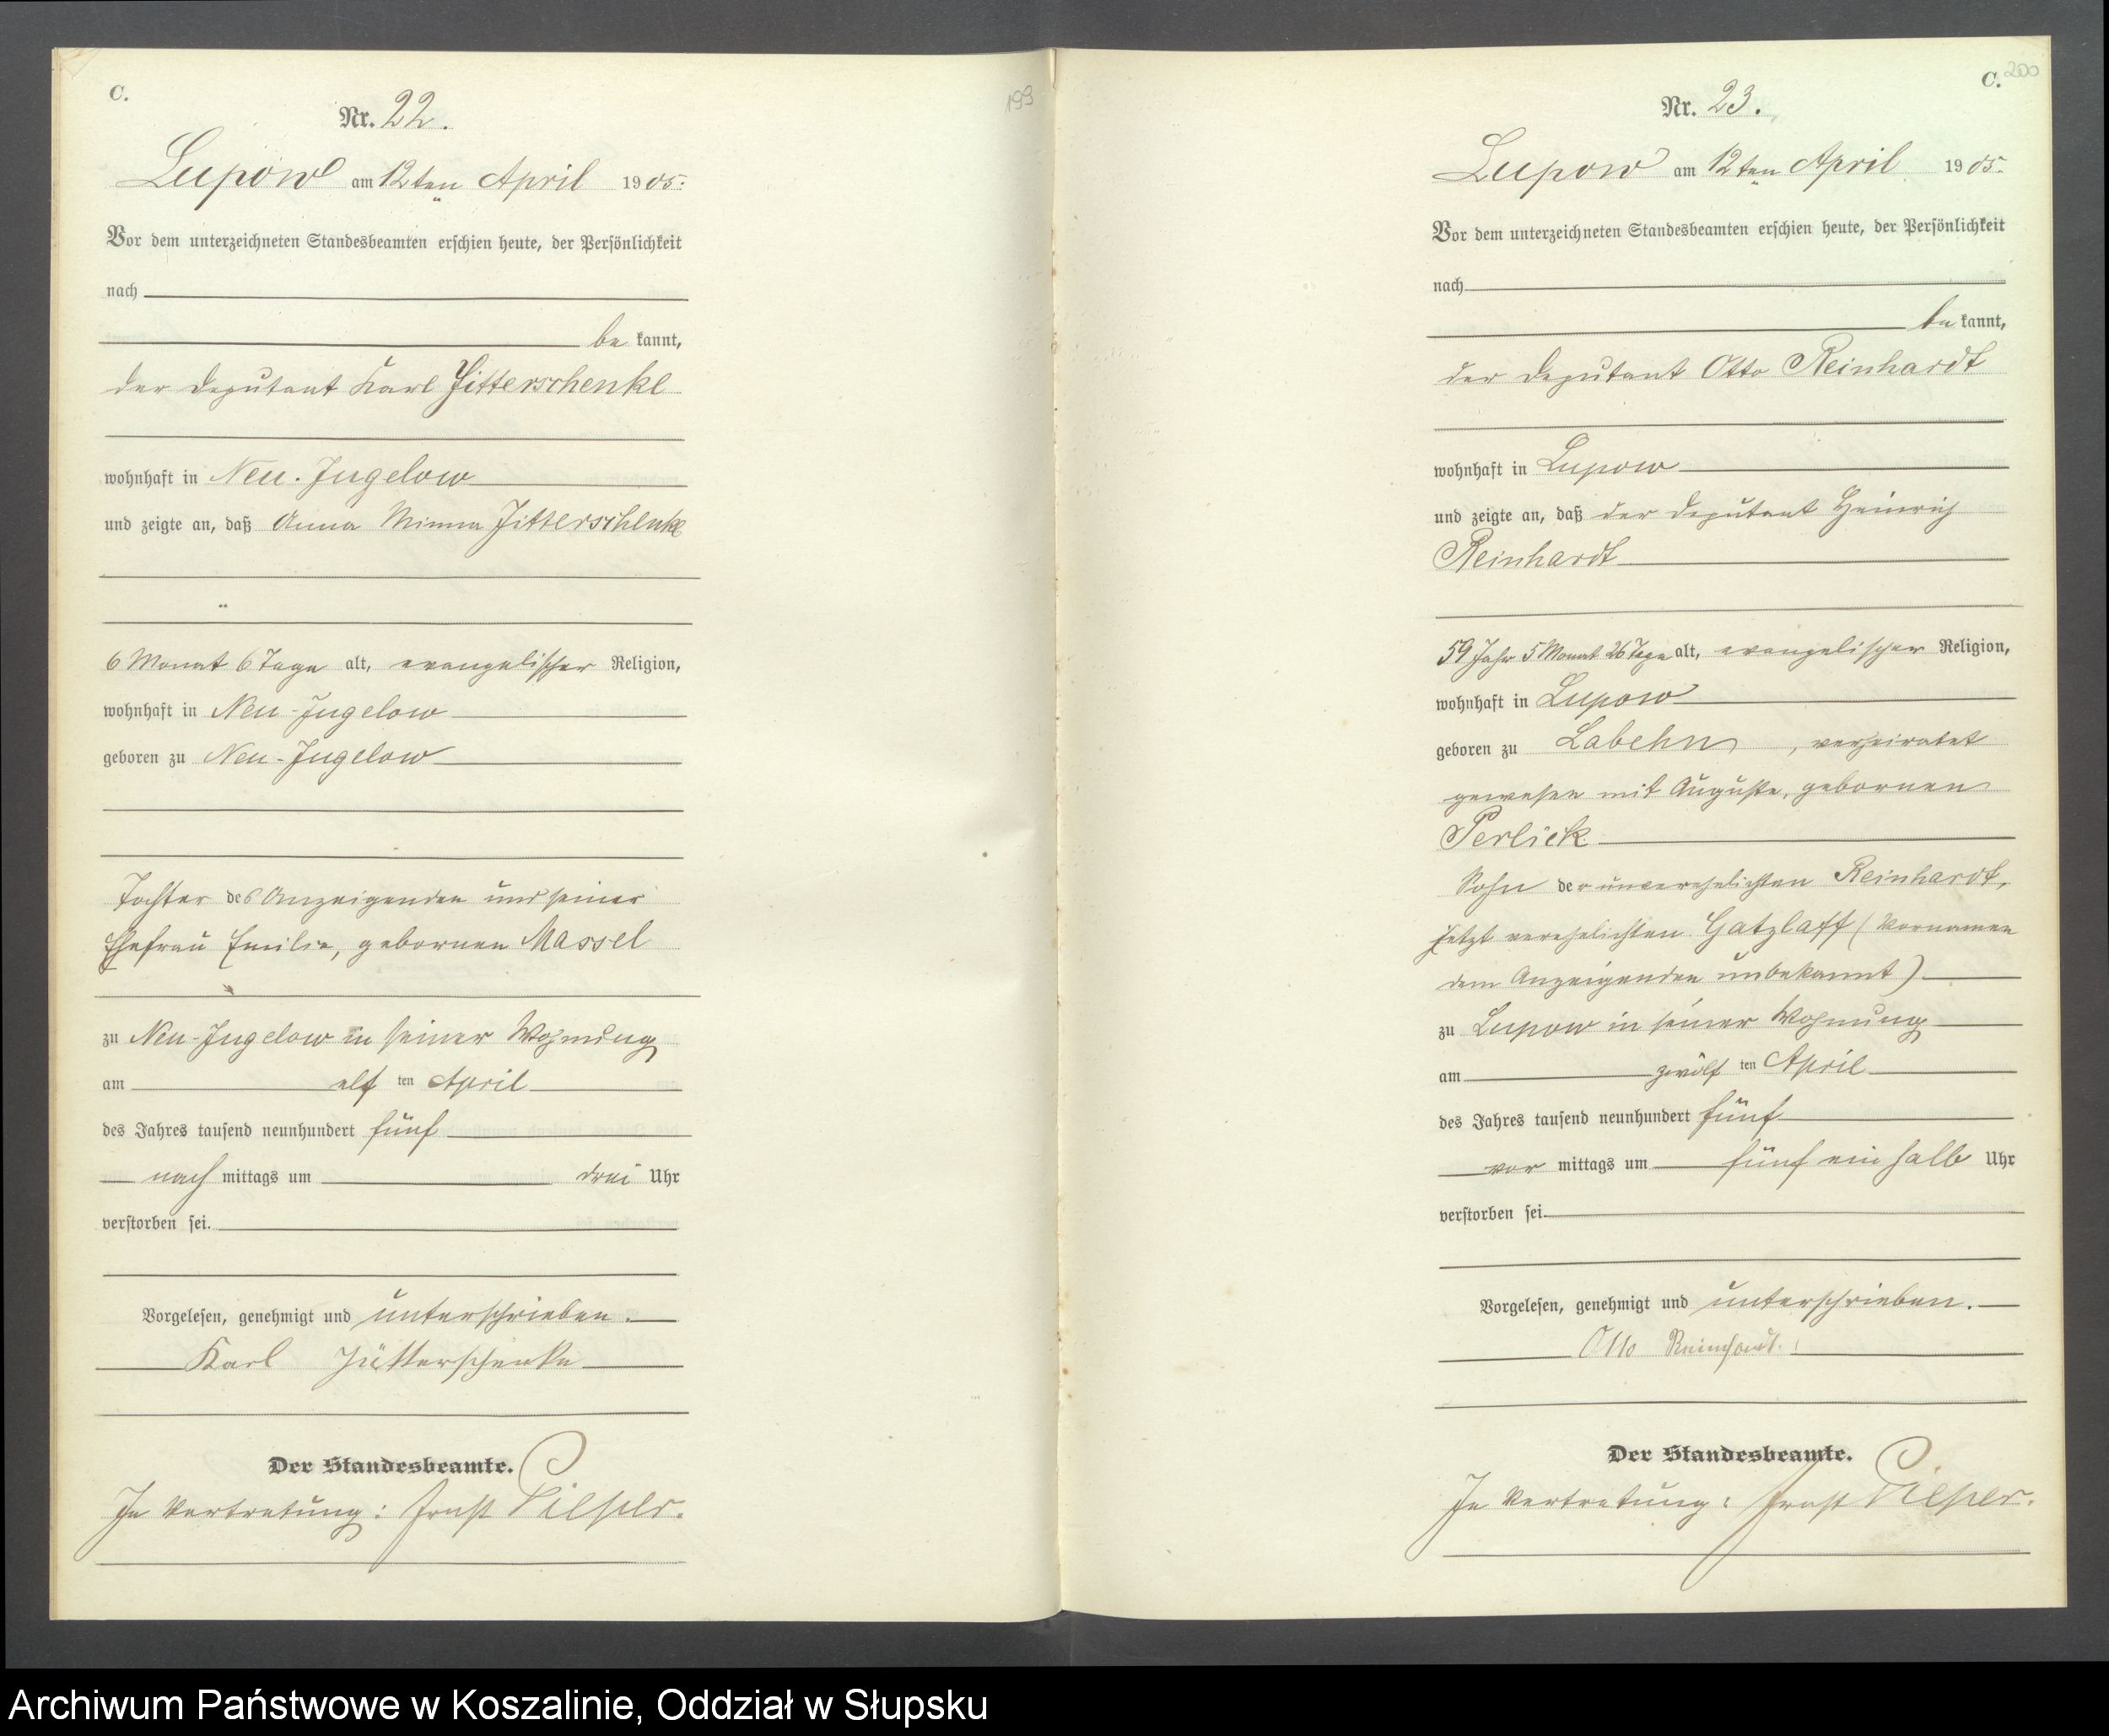 C.
199
Nr. 22.
Lupow am 12ten April 1905.
Vor dem unterzeichneten Standesbeamten erschien heute, der Persönlichkeit
nach
be kannt,
der Deputant Karl Jitterschenke
wohnhaft in Neu-Jugelow
und zeigte an, daß Anna Minna Jitterschenke
6 Monat 6 Tage alt, evangelischer Religion,
wohnhaft in Neu-Jugelow
geboren zu Neu-Jugelow
Tochter des Anzeigenden und seiner
Ehefrau Emilie, gebornen Massel
zu Neu-Jugelow in seiner Wohnung
am elf ten April
des Jahres tausend neunhundert fünf
nach mittags um drei Uhr
verstorben sei.
Vorgelesen, genehmigt und unterschrieben.
Karl Jütterschenke
Der Standesbeamte.
In Vertretung: Ernst Pieper.
C.
200
Nr. 23.
Lupow am 12ten April 1905.
Vor dem unterzeichneten Standesbeamten erschien heute, der Persönlichkeit
nach
be kannt,
der Deputant Otto Reinhardt
wohnhaft in Lupow
und zeigte an, daß der Deputant Heinrich
Reinhardt
59 Jahr 5 Monat 26 Tage alt, evangelischer Religion,
wohnhaft in Lupow
geboren zu Labehn, verheiratet
gewesen mit Auguste, gebornen
Perlick
Sohn der unverehelichten Reinhardt,
jetzt verehelichten Gatzlaff (Vornamen
dem Anzeigenden unbekannt)
zu Lupow in seiner Wohnung
am zwölf ten April
des Jahres tausend neunhundert fünf
vor mittags um fünf ein halb Uhr
verstorben sei.
Vorgelesen, genehmigt und unterschrieben.
Otto Reinhardt.
Der Standesbeamte.
In Vertretung: Ernst Pieper.
Archiwum Państwowe w Koszalinie, Oddział w Słupsku